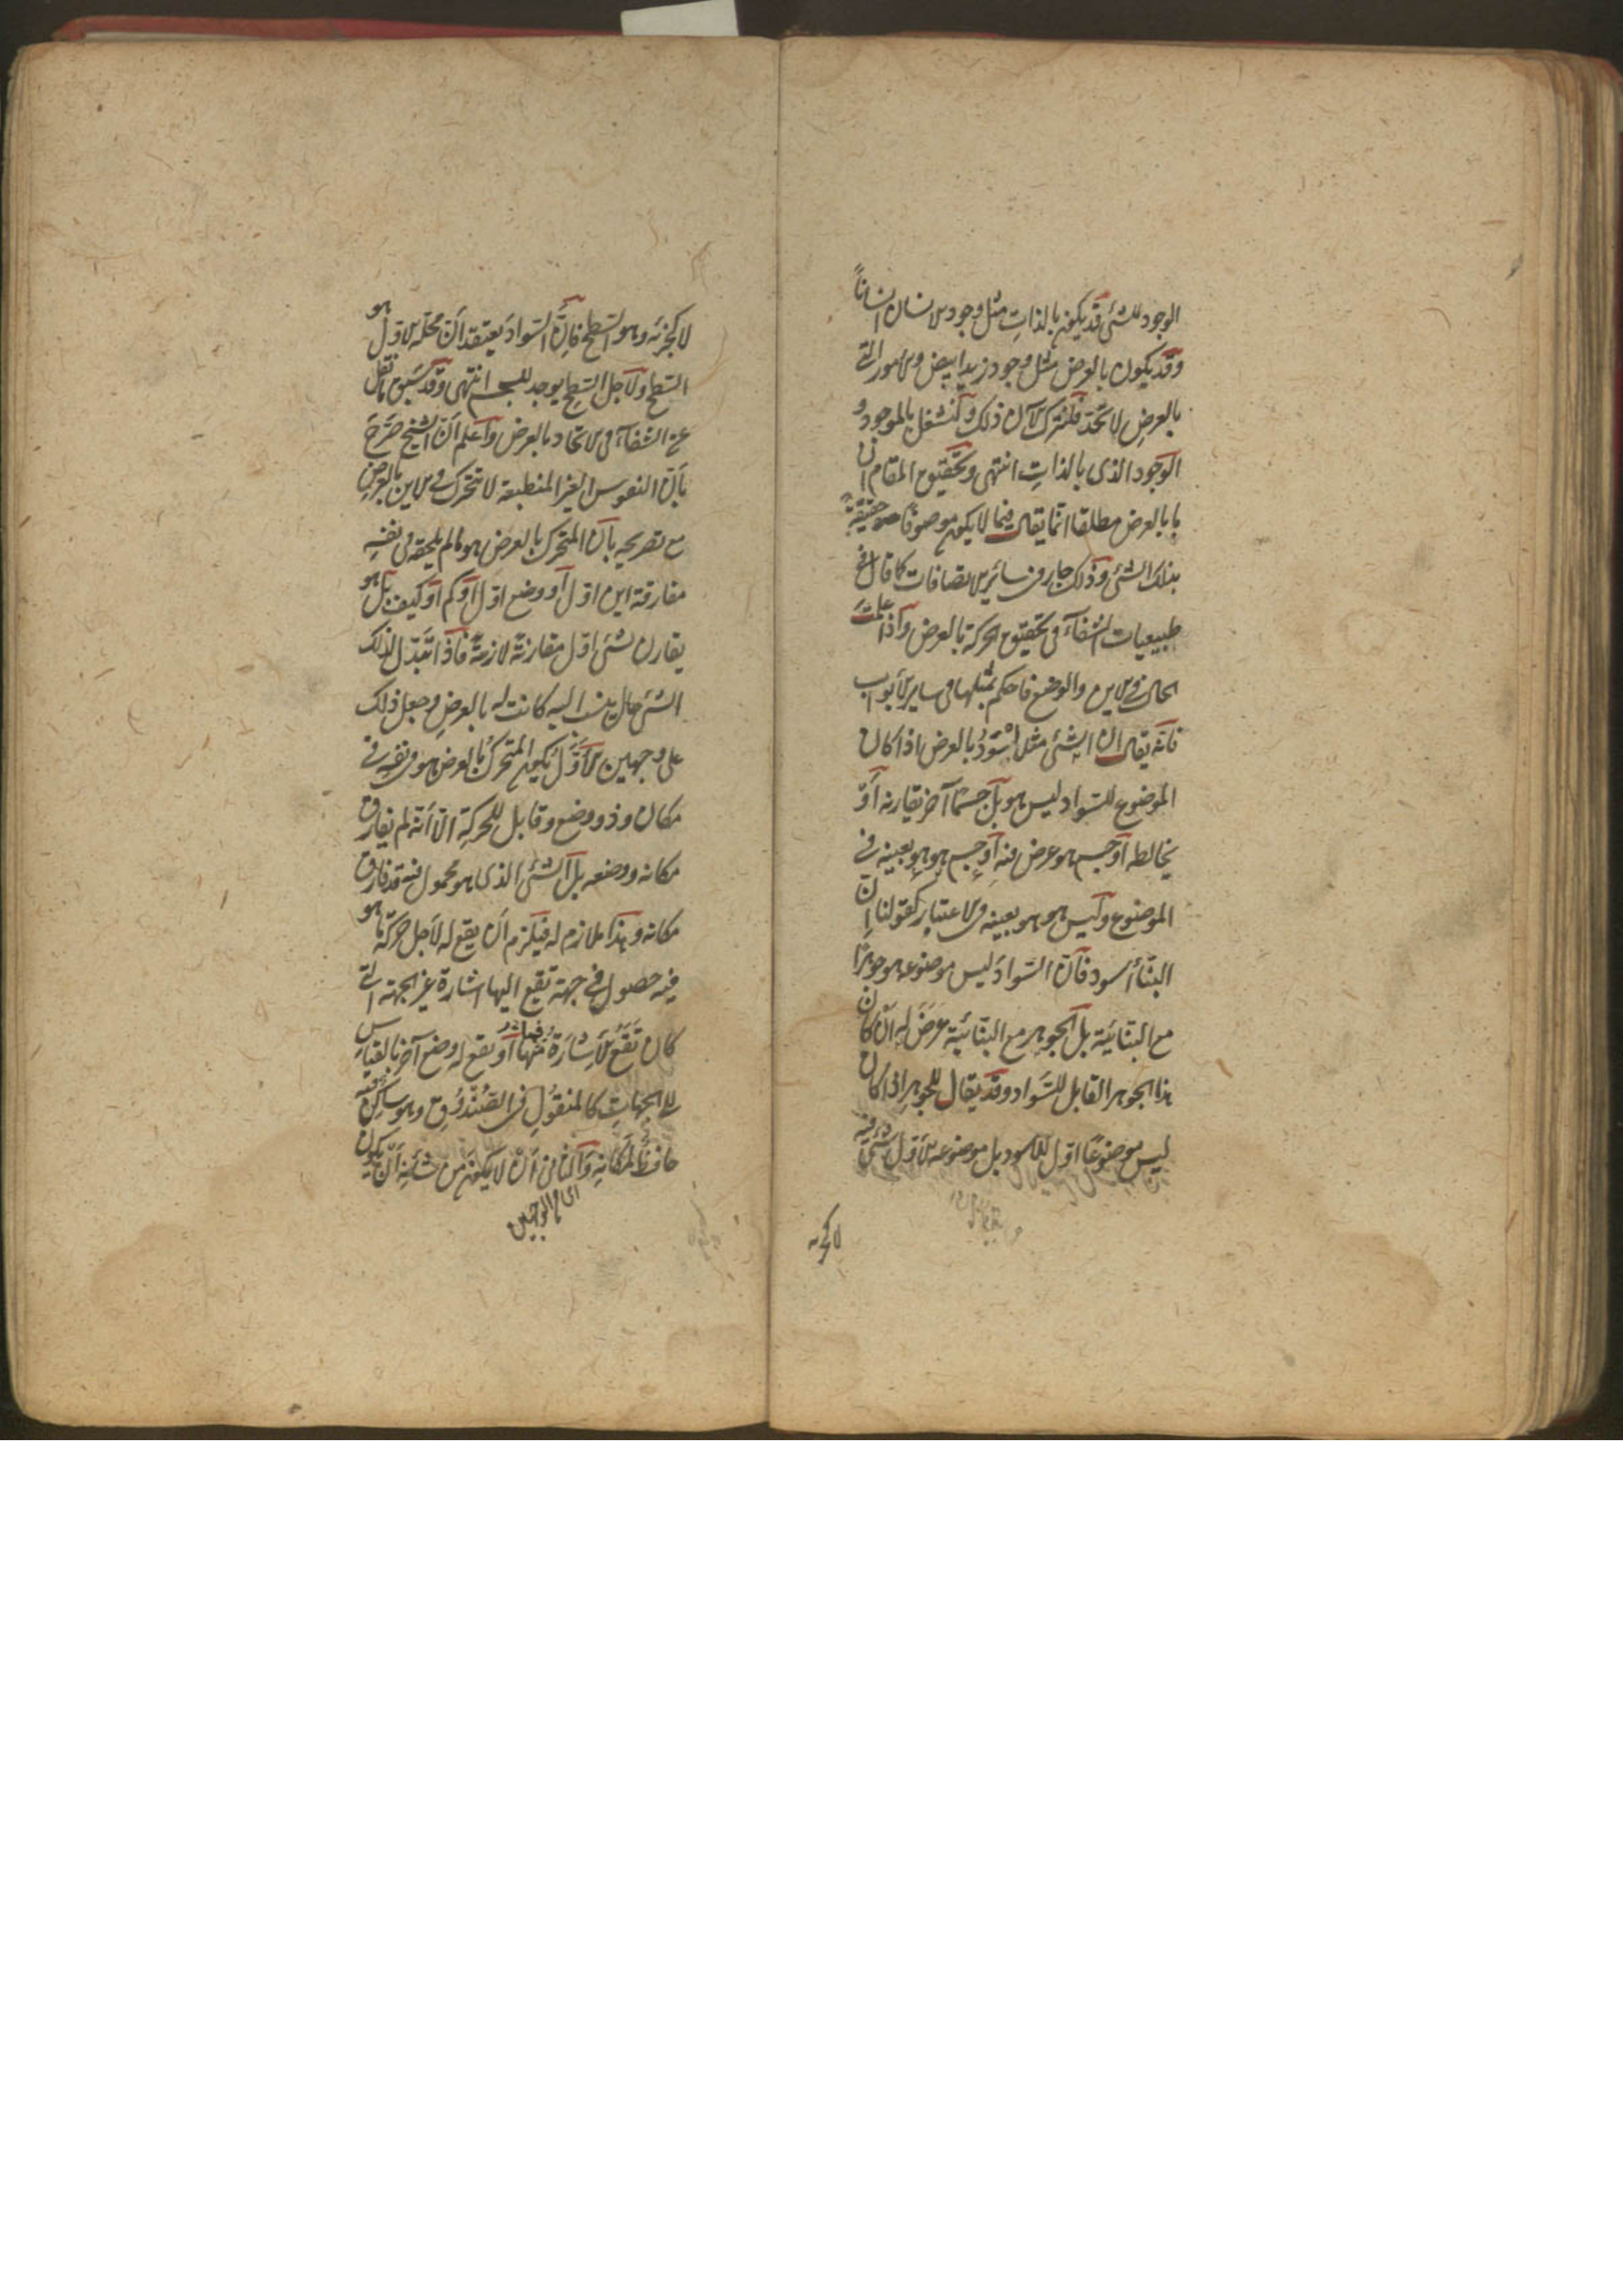 الوجود للشئ قد يكون بالذات مثل وجود الانسان انسانًا
وقد يكون بالعرض مثل وجود زيد ابيض والامور التي
بالعرض لا تحد فلنترك الآن ذلك ولنشتغل بالموجود و
الوجود الذى بالذات انتهى وتحقيق المقام ان
ما بالعرض مطلقا انما يقال فيما لا يكون موصوفًا حقيقة
بذلك الشئ وذلك جار في ساير الاتصافات كما قال في
طبيعيات الشفآء في تحقيق الحركة بالعرض واذا علمت
الحال في الاين والوضع فاحكم بمثلها في ساير الابواب
فانه يقال ان الشئ مثلا اسْوَدّ بالعرض اذا كان
الموضوع للسواد ليس هو بل جسمًا آخر يقارنه أو
يخالطه أو جسم هو عرض فيه أو جسم هو هو بعينه في
الموضوع وليس هو هو بعينه في الاعتبار كقولنا ان
البنّاء أسود فان السواد ليس موضوعه هو جوهرًا
مع البنّائية بل الجوهر مع البنّائية عرض له ان كان
هذا الجوهر القابل للسواد وقد يقال للجوهر اذا كان
ليس موضوعًا اوّل للاسود بل موضوعه الاول شئ فيه
لا كجزئه
لا كجزئه وهو السطح فانّ السواد يعتقد أنّ محله الاول هو
السطح ولاجل السطح يوجد للجسم انتهى وقد سبق ما نقل
عن الشفآء في الاتحاد بالعرض وأعلم أنّ الشيخ صَرَّحَ
بأن النفوس الغير المنطبعة لا تتحرك في الاين بالعرض
مع تصريحه بأن المتحرك بالعرض هو ما لم يلحقه في نفسه
مفارقة اين اوّل أو وضع اوّل أو كم أو كيف بل هو
يقارن لشئ اوّل مقارنة لازمة فاذا تبدّل لذلك
الشئ حال ينسب اليه كانت له بالعرض وجعل ذلك
على وجهين الأوّل يكون المتحرك بالعرض هو في نفسه في
مكان وذو وضع وقابل للحركة الّا أنه لم يفارق
مكانه ووضعه بل الشئ الذى هو محمول فيه قد فارق
مكانه وهذا ملازم له فيلزم أن يقع له لأجل حركة ما هو
فيه حصول في جهة تقع اليها اشارة غير الجهة التي
كان تقع الاشارة فيها أو يقع له وضع آخر بالقياس
للجهات كالمنقول في الصُنْدُوق وهو ساكن فيه
حافظ لمكانه والثانى أن لا يكون من شأنه أن يكون
اى ما الوجهين